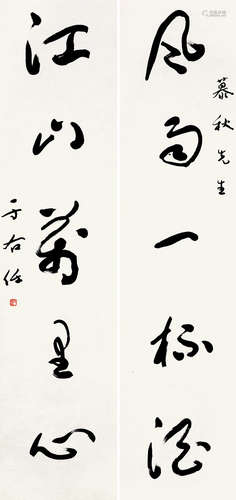 慕秋先生
風雨一杯酒
江山萬里心
于右任